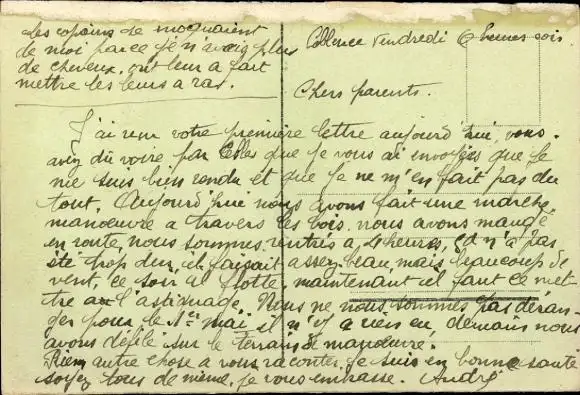 les copains se moquaient
de moi parce j'en avais plus
de cheveux, ont leur a fait
mettre les leurs a ras.
Coblence Vendredi 6 heures soir
Chers parents.
J'ai reçu votre première lettre aujourd'hui, vous
avez dû voire par celles que je vous ai envoyées que je
me suis bien rendu et que je ne m'en fait pas du
tout. Aujourd'hui nous avons fait une marche
manœuvre a travers les bois, nous avons mangé
en route, nous sommes rentrés a 4 heures, et n'a pas
été trop dur, il faisait assez beau mais beaucoup de
vent, ce soir il flotte, maintenant il faut ce met-
tre a l'astiquage. Nous ne nous sommes pas déran-
gés pour le 1er mai il n'y a rien eu, demain nous
avons défilé sur le terrain de manœuvre.
Rien autre chose a vous raconter, je suis en bonne santé
soyez tous de même, je vous embrasse. André